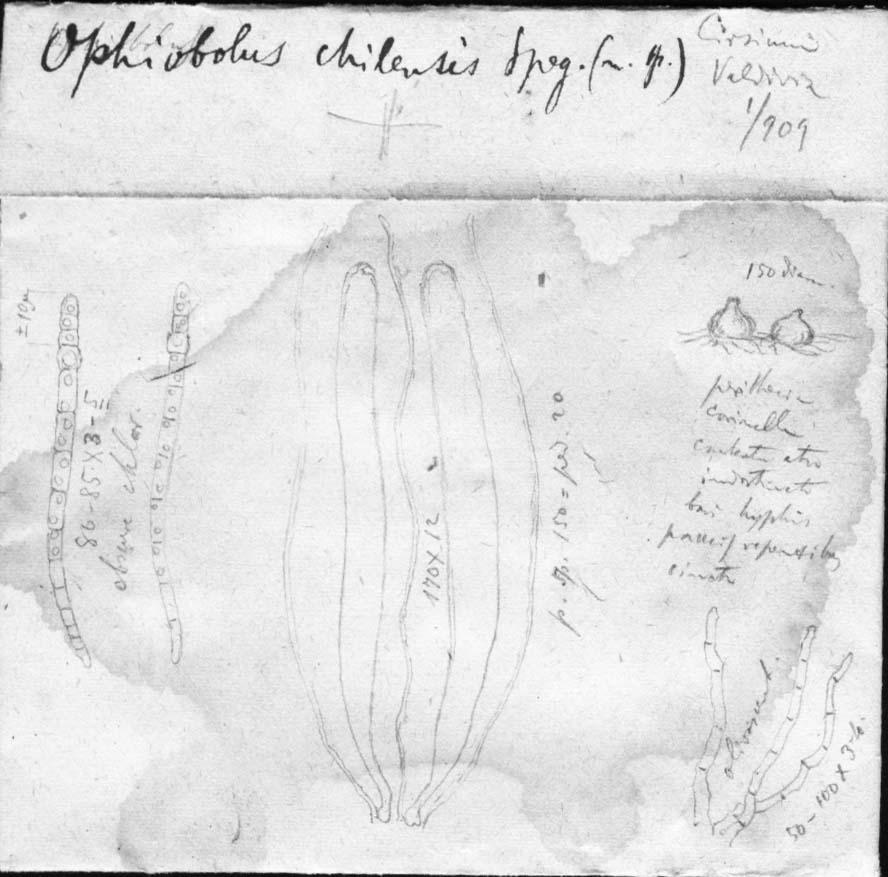 Ophiobolus chilensis Speg. (n. sp.)
Cirsium
Valdivia
1/909
±10µ
86-85 X 3-5
obscure chlor.
170 X 12
p. sp. 150 = par. 20
150 diam.
perithecia
carinella
contextu atro
indistincto
basi hyphis
paucis repentibus
cincta
olivascent.
50-100 X 3-6.